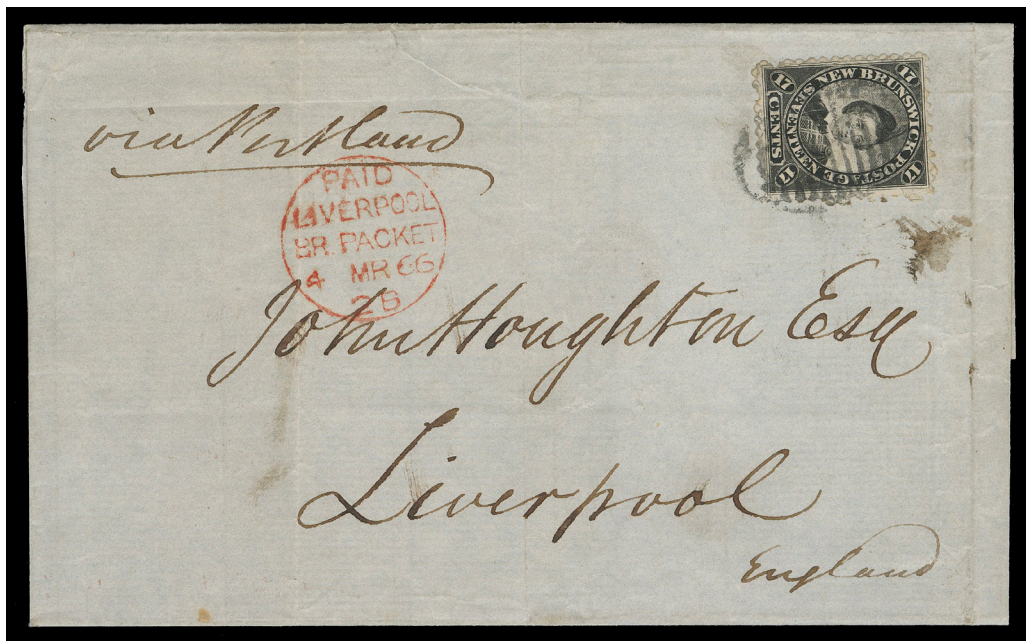 via Portland
17 NEW BRUNSWICK POSTAGE 17
17 SEVENTEEN CENTS 17
PAID
LIVERPOOL
BR. PACKET
4 MR 66
2B
John Houghton Esq
Liverpool
England